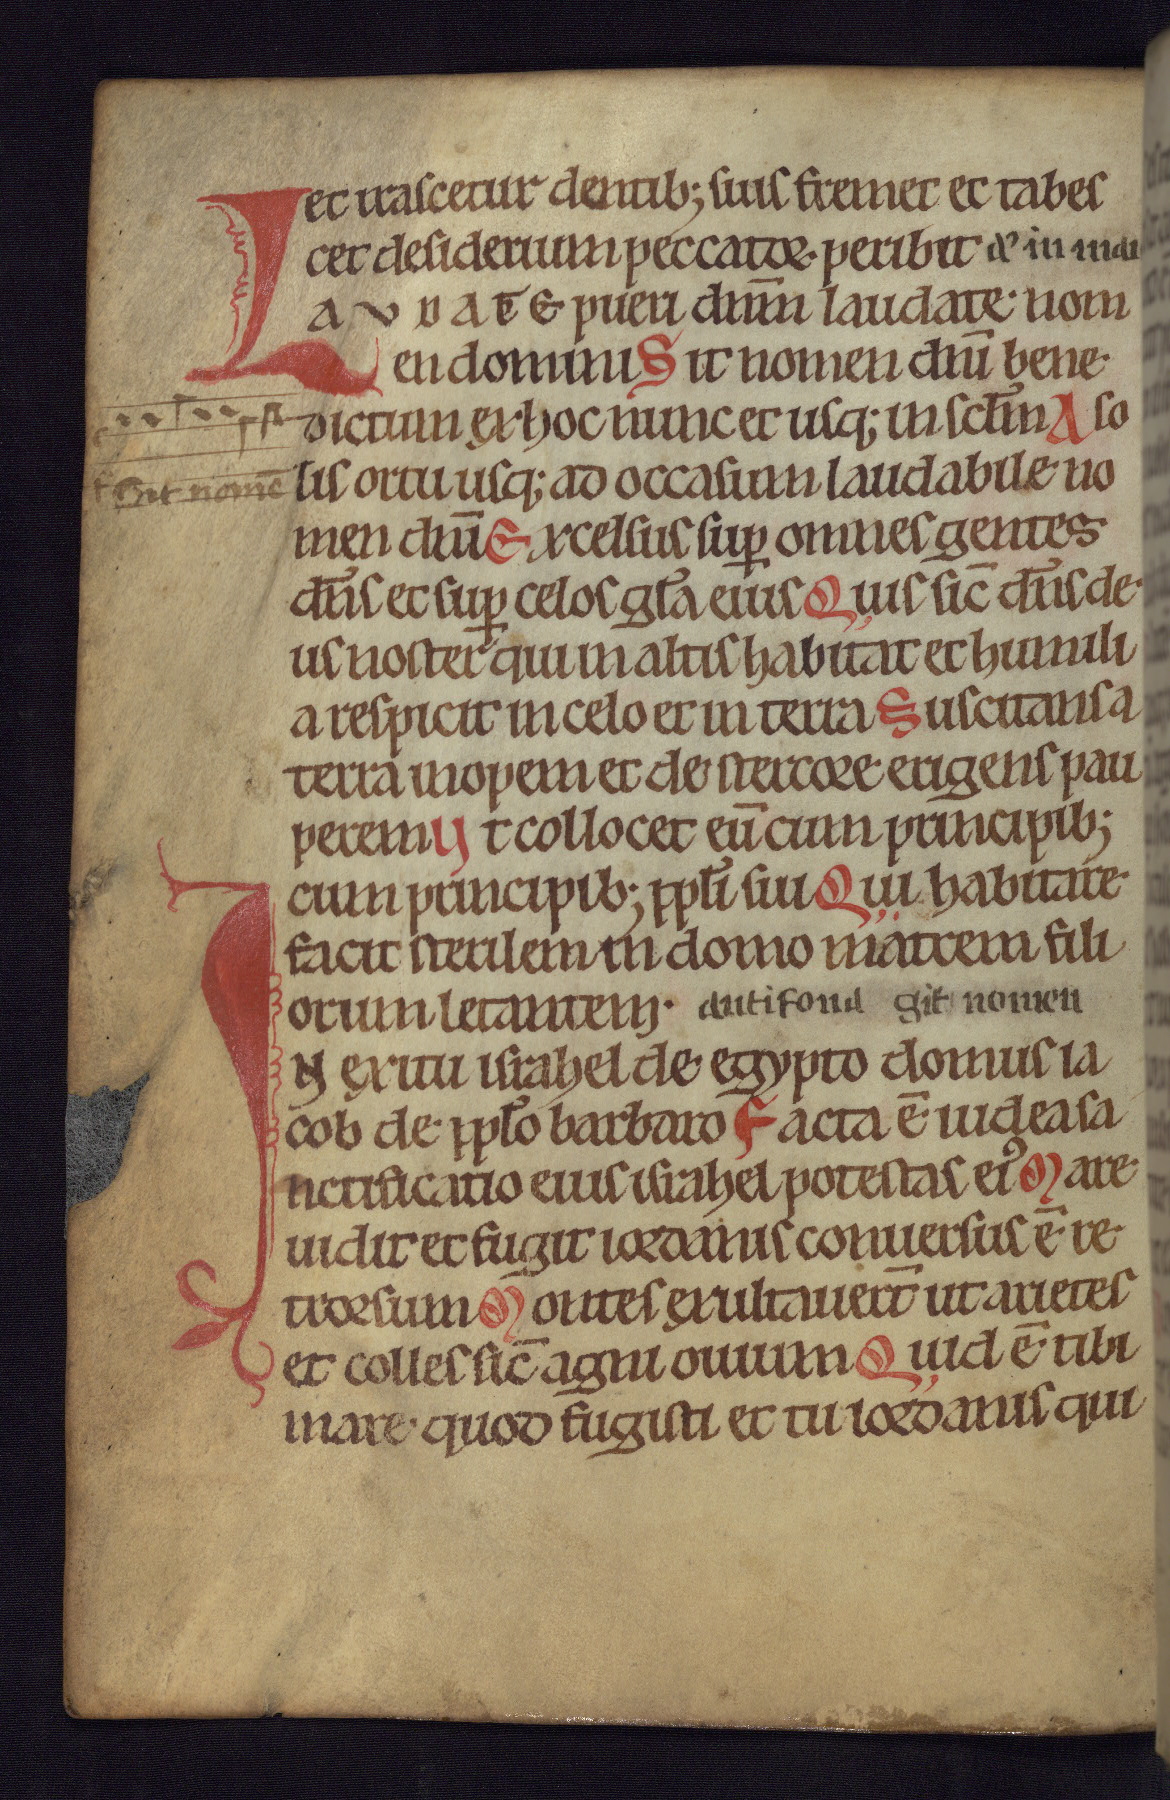 et irascetur dentib; suis fremet et tabes
cet desiderium peccatoꝝ peribit
LAVDATE pueri dn̄m laudate nom
en domini Sit nomen dn̄i bene
dictum ex hoc nunc et usq; in sc̄lm A so
Sit nomē
lis ortu usq; ad occasum laudabile no
men dn̄i Excelsus suꝑ omnes gentes
dn̄s et suꝑ celos gl̄a eius Quis sic̄ dn̄s de
us noster qui in altis habitat et humili
a respicit in celo et in terra Suscitans a
terra inopem et de stercore erigens pau
perem Vt collocet eū cum principib;
cum principib; ppl̄i sui Qui habitare
facit sterilem in domo matrem fili
orum letantem. antifona sit nomen
IN exitu israhel de egypto domus ia
cob de ppl̄o barbaro Facta ē iudea sa
nctificatio eius israhel potestas eiꝰ Mare
uidit et fugit iordanis conuersus ē re
trorsum Montes exultauert̄ ut arietes
et colles sic̄ agni ouium Quid ē tibi
mare quod fugisti et tu iordanis qui